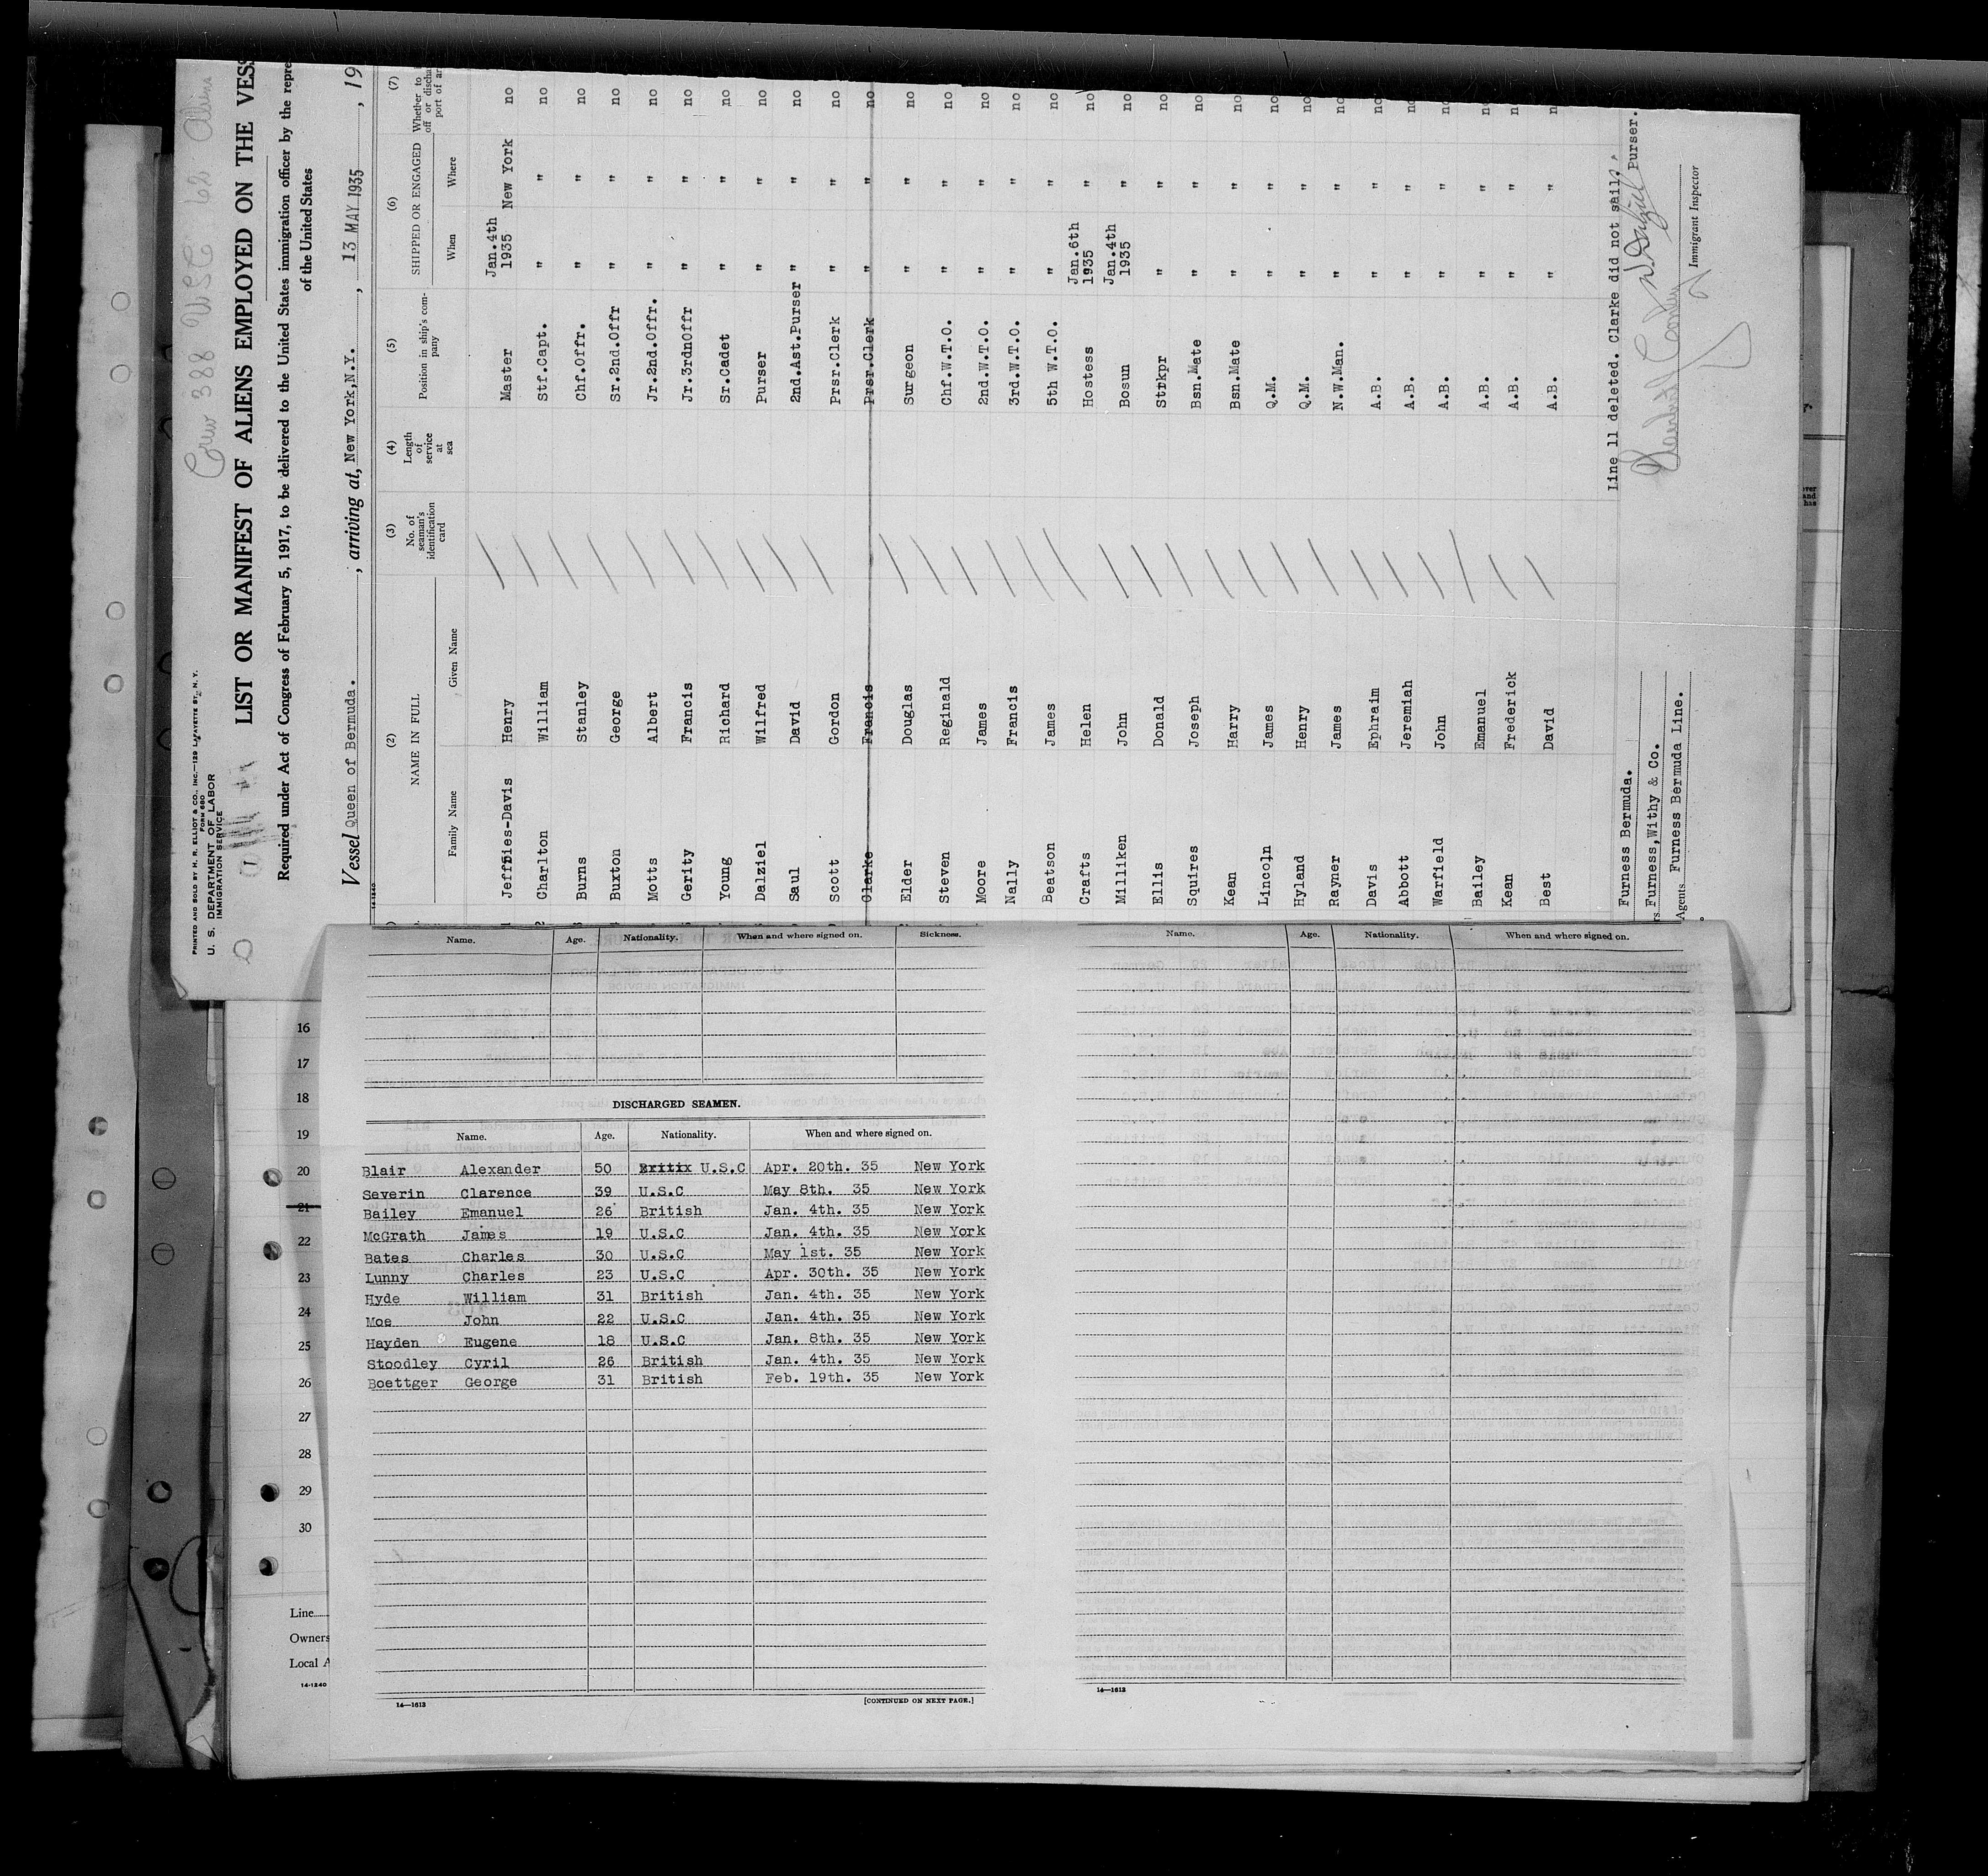 PRINTED AND SOLD BY H. R. ELLIOT & CO., INC.—129 LAFAYETTE ST., N. Y.
FORM 680
U. S. DEPARTMENT OF LABOR
IMMIGRATION SERVICE
Crew 388 USC 62 Aliens
LIST OR MANIFEST OF ALIENS EMPLOYED ON THE VESS
Required under Act of Congress of February 5, 1917, to be delivered to the United States immigration officer by the repre
of the United States
Vessel Queen of Bermuda. , arriving at, New York,N.Y. , 13 MAY 1935 , 19
14-1240
(2) (3) (4) (5) (6) (7)
NAME IN FULL No. of seaman's identification card Length of service at sea Position in ship's company SHIPPED OR ENGAGED Whether to
off or discha
port of ar
Family Name Given Name When Where
Jeffries-Davis Henry Master Jan.4th 1935 New York no
2 Charlton William Stf.Capt. " " no
Burns Stanley Chf.Offr. " " no
Buxton George Sr.2nd.Offr " " no
Motts Albert Jr.2nd.Offr. " " no
Gerity Francis Jr.3rdnOffr " " no
Young Richard Sr.Cadet " " no
Dalziel Wilfred Purser " " no
Saul David 2nd.Ast.Purser " " no
Scott Gordon Prsr.Clerk " " no
Clarke Francis Prsr.Clerk " " no
Elder Douglas Surgeon " " no
Steven Reginald Chf.W.T.O. " " no
Moore James 2nd.W.T.O. " " no
Nally Francis 3rd.W.T.O. " " no
Beatson James 5th W.T.O. " " no
Crafts Helen Hostess Jan.6th 1935 " no
Milliken John Bosun Jan.4th 1935 " no
Ellis Donald Strkpr " " no
Squires Joseph Bsn.Mate " " no
Kean Harry Bsn.Mate " " no
Lincoln James Q.M. " " no
Hyland Henry Q.M. " " no
Rayner James N.W.Man. " " no
Davis Ephraim A.B. " " no
Abbott Jeremiah A.B. " " no
Warfield John A.B. " " no
Bailey Emanuel A.B. " " no
Kean Frederick A.B. " " no
Best David A.B. " " no
Line 11 deleted. Clarke did not sail.
Furness Bermuda.
W. Dalziel Purser.
rs Furness,Withy & Co.
Agents Furness Bermuda Line.
Immigrant Inspector
Name. Age. Nationality. When and where signed on. Sickness.
Name. Age. Nationality. When and where signed on.
16
17
18
19
20
21
22
23
24
25
26
27
28
29
30
Line
Owners
Local A
14-1240
DISCHARGED SEAMEN.
Name. Age. Nationality. When and where signed on.
Blair Alexander 50 Britix U.S.C Apr. 20th. 35 New York
Severin Clarence 39 U.S.C May 8th. 35 New York
Bailey Emanuel 26 British Jan. 4th. 35 New York
McGrath James 19 U.S.C Jan. 4th. 35 New York
Bates Charles 30 U.S.C May 1st. 35 New York
Lunny Charles 23 U.S.C Apr. 30th. 35 New York
Hyde William 31 British Jan. 4th. 35 New York
Moe John 22 U.S.C Jan. 4th. 35 New York
Hayden Eugene 18 U.S.C Jan. 8th. 35 New York
Stoodley Cyril 26 British Jan. 4th. 35 New York
Boettger George 31 British Feb. 19th. 35 New York
14—1613
[CONTINUED ON NEXT PAGE.]
14—1613